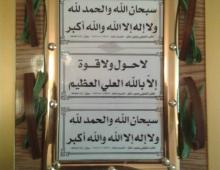 سبحان الله والحمد لله
ولا إله إلا الله والله أكبر
لاحول ولا قوة
إلا بالله العلي العظيم
سبحان الله والحمد لله
ولا إله إلا الله والله أكبر